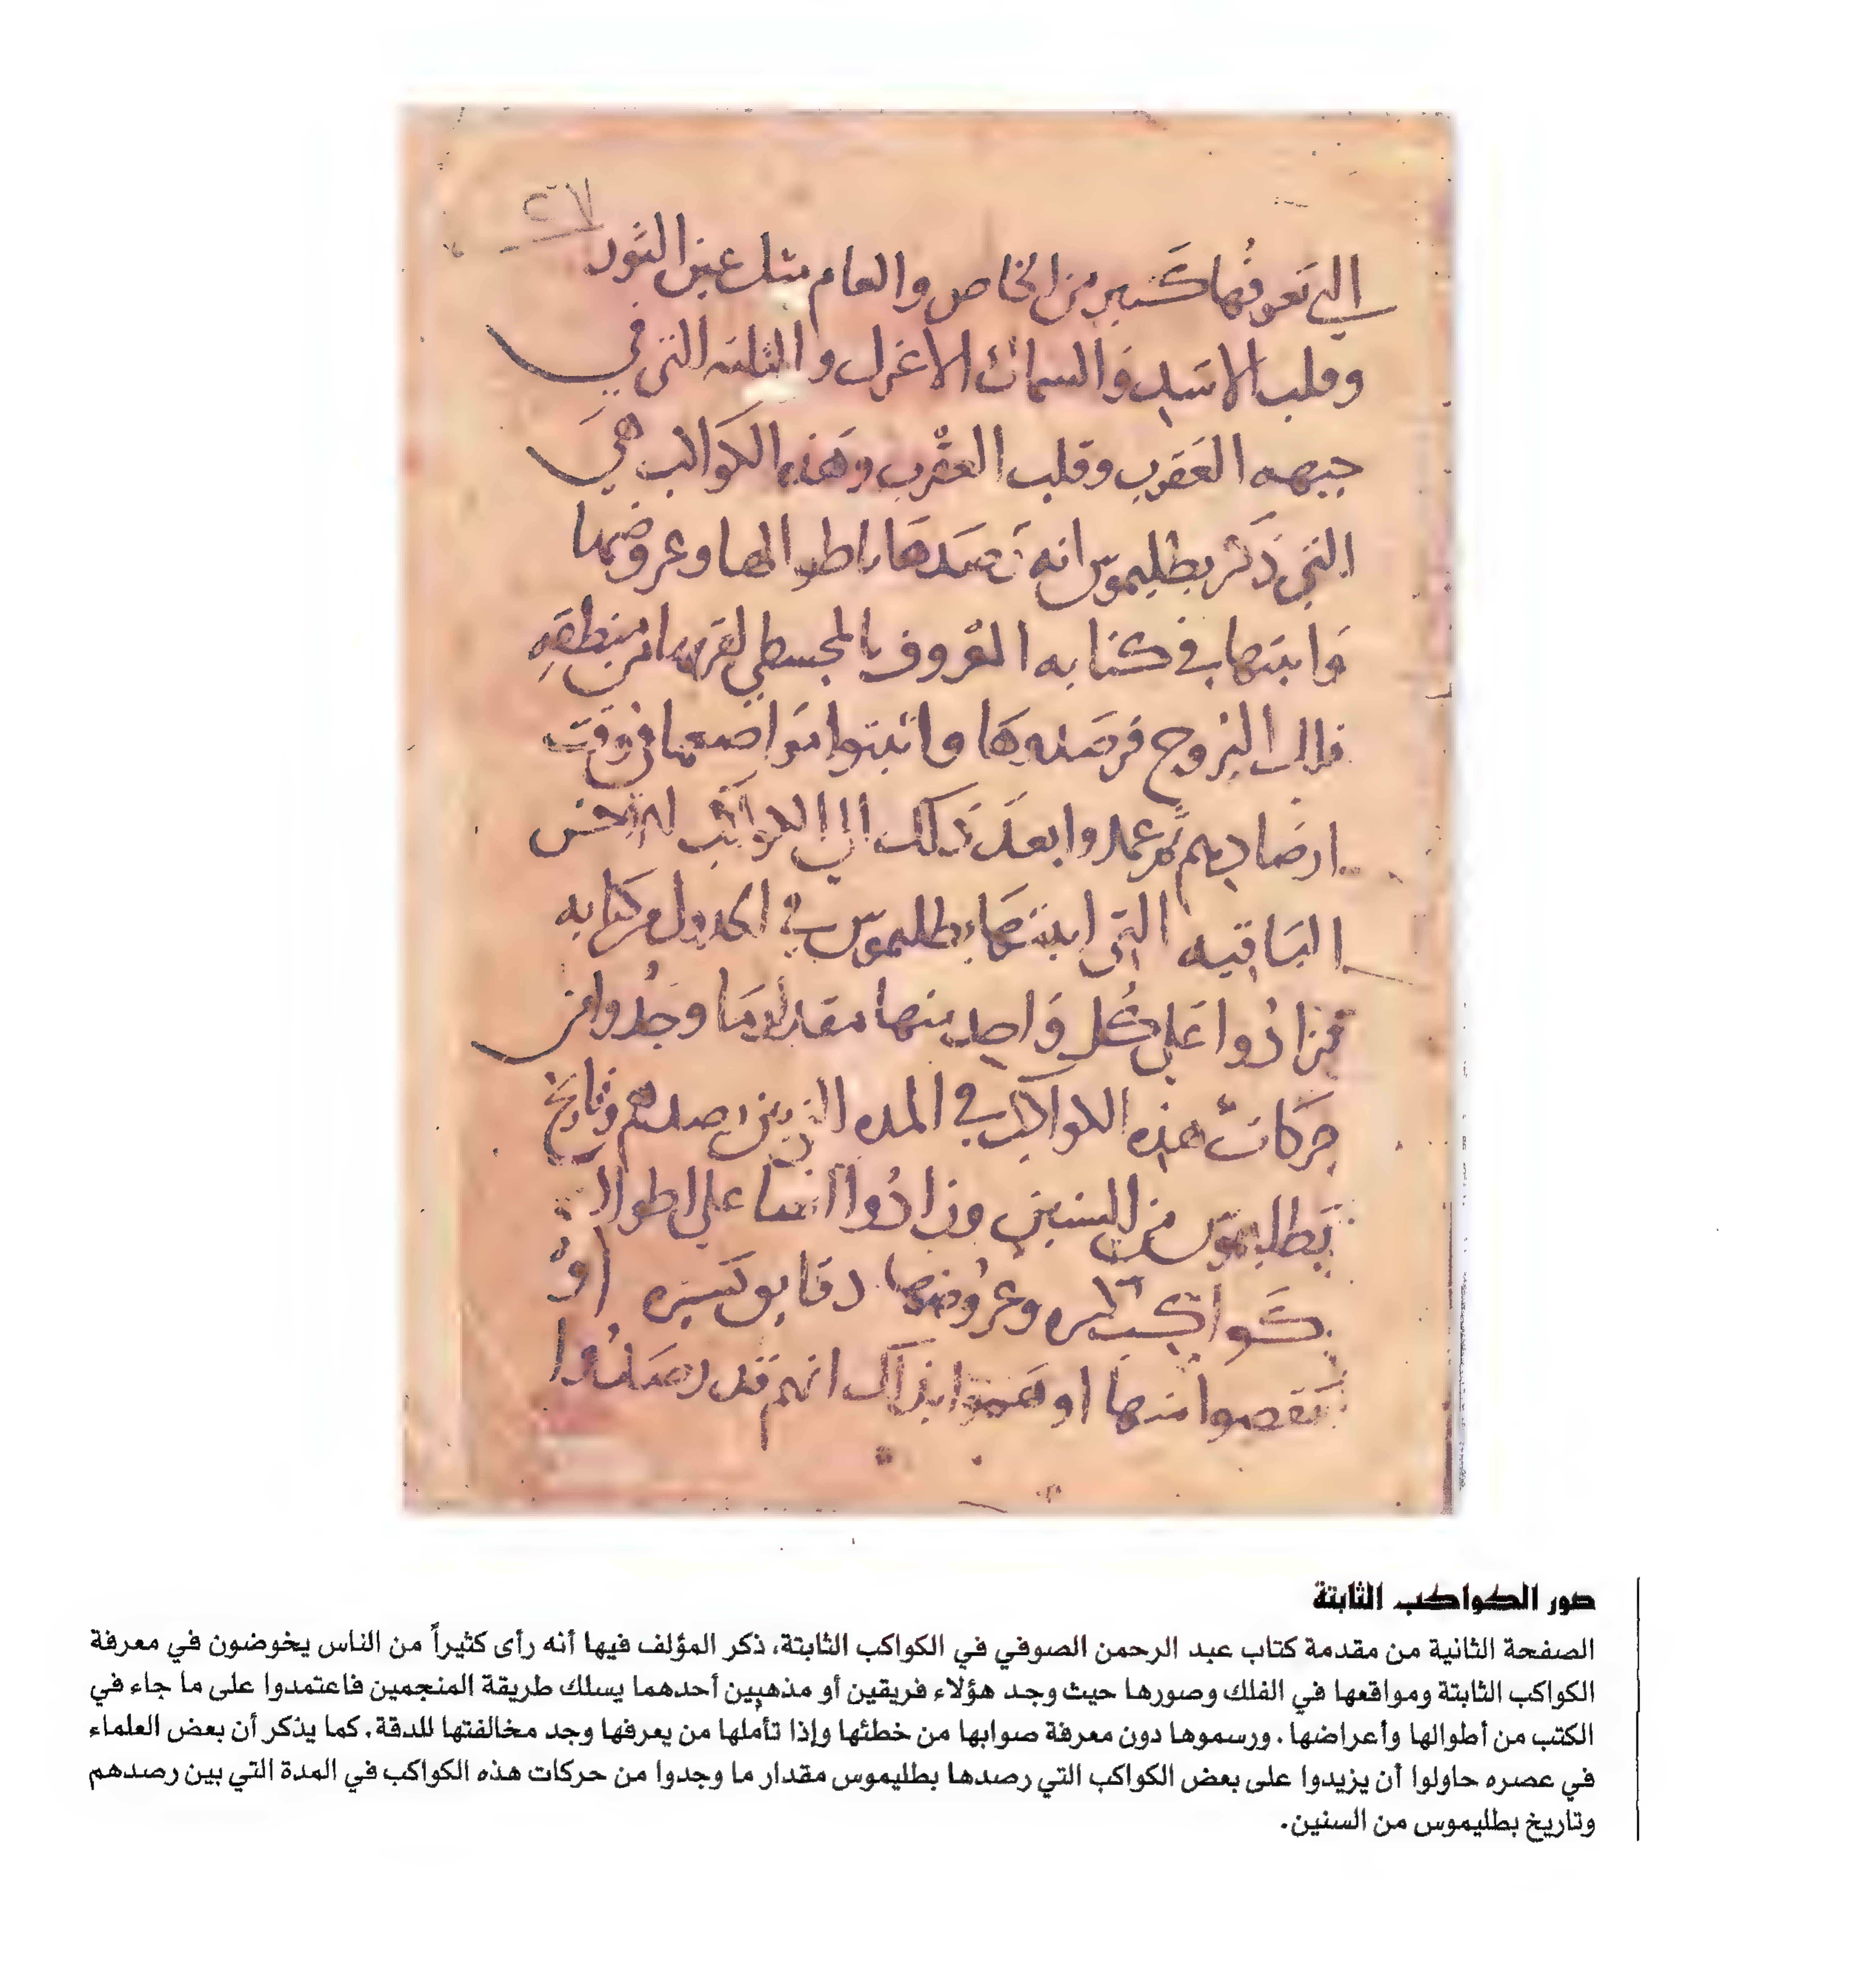 ٢٧
التي تعرفها كثير من الخاص والعام مثل عين الثور
وقلب الاسد والسماك الاعزل والثلثه التي في
جبهه العقرب وقلب العقرب وهذه الكواكب هي
التي ذكر بطليموس انه رصدها باطوالها وعروضها
واثبتها في كتابه المعروف بالمجسطي لقربها من منطقه
فلك البروج فرصدوها واثبتوا مواضعها في وقت
ارصادهم ثم عمدوا بعد ذلك الي الكواكب الاخر
الباقيه التي اثبتها بطليموس في الجدول من كتابه
فزادوا علي كل واحد منها مقدار ما وجدوا من
حركات هذه الكواكب في المده الذي بين رصدهم وتاريخ
بطليموس من السنين وزادوا ايضا علي اطوال
كواكب كثيره وعروضها دقايق كثيره او
نقصوا منها اوهموا بذلك انهم قد رصدوا
صور الكواكب الثابتة
الصفحة الثانية من مقدمة كتاب عبد الرحمن الصوفي في الكواكب الثابتة، ذكر المؤلف فيها أنه رأى كثيراً من الناس يخوضون في معرفة
الكواكب الثابتة ومواقعها في الفلك وصورها حيث وجد هؤلاء فريقين أو مذهبين أحدهما يسلك طريقة المنجمين فاعتمدوا على ما جاء في
الكتب من أطوالها وأعراضها. ورسموها دون معرفة صوابها من خطئها وإذا تأملها من يعرفها وجد مخالفتها للدقة. كما يذكر أن بعض العلماء
في عصره حاولوا أن يزيدوا على بعض الكواكب التي رصدها بطليموس مقدار ما وجدوا من حركات هذه الكواكب في المدة التي بين رصدهم
وتاريخ بطليموس من السنين.